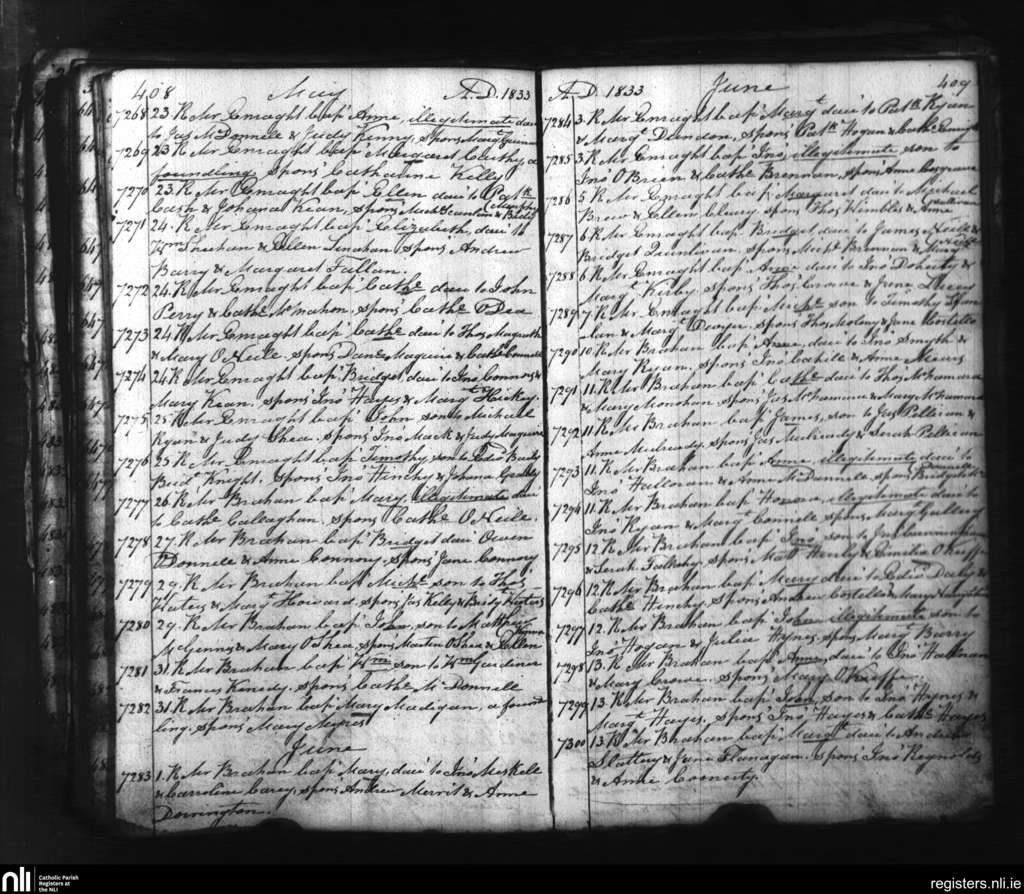 408 May A.D. 1833
7268 23. R. Mr Enraght bap. Anne, illegitimate daur
to Jas McDonnell & Judy Kenny, spons Margt
7269 23 R. Mr Enraght bap. Margaret Carthy, a
foundling spons Catharine Kelly
7270 23. R. Mr Enraght bap. Ellen daur to Patk
Cash & Johana Kean, spons Michl Scanlan & Bridgt Murphy
7271 24. R. Mr Enraght bap. Elizabeth, daur to
Wm Sheehan & Ellen Linahan spons Andrew
Barry & Margaret Fallan.
7272 24. R. Mr Enraght bap. Cathe daur to John
Perry & Cathe McMahon, spons Cathe ODea
7273 24. R. Mr Enraght bap. Cathe daur to Thos
& Mary ONeile spons Danl Maguire & Cathe Connell
7274 24 R. Mr Enraght bap. Bridget, daur to Jno Connors &
Mary Kean. spons Jno Hayes & Margt Hickey.
7275 25. R. Mr Enraght bap. John son to Michael
Ryan & Judy Shea. spons Jno Mack & Judy Maguire
7276 25 R. Mr Enraght bap. Timothy, son to Edwd
Bridt Knight. spons Jno Hinchy & Johana
7277 26. R. Mr Brahan bap. Mary, illegitimate daur
to Cathe Callaghan, spons Cathe ONeile.
7278 27. R. Mr Brahan bap. Bridget daur Owen
Donnell & Anne Connory spons Jane Connory
7279 29. R. Mr Brahan bap. Michl son to Thos
Waters & Margt Howard, spons Jas Kelly & Bridgt Waters
7280 29. R. Mr Brahan bap. John, son to Mathew
McGenns & Mary OShea, spons Martin OShea & Ellen
7281 31. R. Mr Brahan bap. Wm son to Wm Gardiner
& Frances Kenedy. spons Cathe McDonnell
7282 31. R. Mr Brahan bap. Mary Madigan, a found
ling. spons Mary Meyres
June
7283 1. R. Mr Brahan bap. Mary, daur to Jno Meskell
& Carroline Carey, spons Andrew Merrit & Anne
Dorrington.
A.D. 1833 June 409
7284 3. R. Mr Enraght bap. Margt daur to Patk Ryan
& Margt Dundon, spons Patk Hogan & Cathe Enright
7285 3. R. Mr Enraght bap. Jno, illegitimate son to
Jno OBrien & Cathe Brennan, spons Anne Cosgrave
7286 5 R. Mr Enraght bap. Margaret daur to Michael
Brew & Ellen Cleary spons Thos Wimbles & Anne Sullivan
7287 6 R. Mr Enraght bap. Bridget daur to James Neill &
Bridget Quinlivan, spons Michl Brennan & Mary Neill
7288 6 R. Mr Enraght bap. Anne daur to Jno Doherty &
Margt Kirby. spons Thos Crowe & Jane Lacey
7289 7. R. Mr Enraght bap. Michl son to Timothy
& Margt Dwyer. spons Thos Molony & Jane Costello
7290 10. R. Mr Brahan bap. Anne, daur to Jno Smyth &
Mary Ryan, spons Jno Cahill & Anne Meers
7291 11. R. Mr Brahan bap. Cathe daur to Thos McNamara
& Mary Monohan, spons Jas McNamara & Mary McNamara
7292 11. R. Mr Brahan bap. James, son to Jas Pellican &
Anne Mulready spons Jas Mulready & Sarah Pellican
7293 11. R. Mr Brahan bap. Anne, illegitimate daur to
Jno Halloran & Anne McDonnell spons Bridget
7294 11. R. Mr Brahan bap. Honora, illegitimate daur to
Jno Ryan & Margt Connell spons Margt Gallery
7295 12. R. Mr Brahan bap. Jno son to Jas Cunningham
& Sarah Fallahy, spons Matt Hanly & OKeeffe
7296 12. R. Mr Brahan bap. Mary daur to Edwd Daly &
Cathe Hinchy, spons Andrew Costello & Mary
7297 12. R. Mr Brahan bap. John illegitimate son to
Jno Hogan & Julia Hynes, spons Mary Barry
7298 13. R. Mr Brahan bap. Anne, daur to Jno Halloran
& Mary Crowe. spons Mary OKeeffe
7299 13. R. Mr Brahan bap. John son to Jno Hynes &
Margt Hayes. spons Jno Hayes & Cathe Hayes
7300 13. R. Mr Brahan bap. Margt daur to Andrew
Slattery & Jane Flanagan. spons Jno Reynolds
& Anne Coonerty.
nli Catholic Parish
Registers at
the NLI
registers.nli.ie